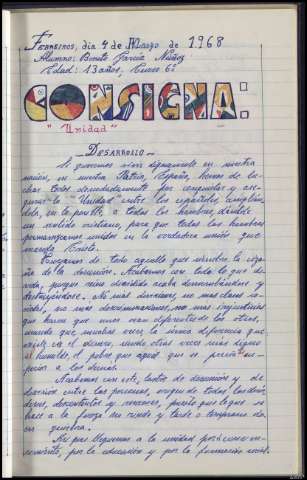 Ferreiros, día 4 de Marzo de 1968
Alumno: Benito García Núñez
Edad: 13 años, Curso 6º
CONSIGNA:
"Unidad"
-DESARROLLO-
Si queremos vivir dignamente en nuestra
nación, en nuestra Patria, España, hemos de lu-
char todos denodadamente por conquistar y ase-
gurar la "Unidad" entre los españoles, amplián-
dola, en lo posible, a todos los hombres, dándole
un sentido cristiano, para que todos los hombres
permanezcamos unidos en la verdadera unión que
manda Cristo.
de todo aquello que siembre la ciza-
ña de la desunión. Acabemos con todo lo que di-
vida, porque reino dividido acaba derrumbándose y
destruyéndose. Ni más divisiones, ni más clases so-
ciales, ni más discriminaciones, ni más injusticias
que hacen que unos sean diferentes de los otros,
siendo que muchas veces la única diferencia que
existe es el dinero, siendo otras veces más digno
el humilde, el pobre que aquel que se precia su-
perior a los demás.
Acabemos con este, factor de desunión y de
división entre las personas, origen de todos los desór-
denes, descontentos y rencores, puesto que lo que se
hace a la fuerza no cunde y tarde o temprano da
en quiebra.
Así pues lleguemos a la unidad por el conven-
cimiento, por la educación y por la formación cons-